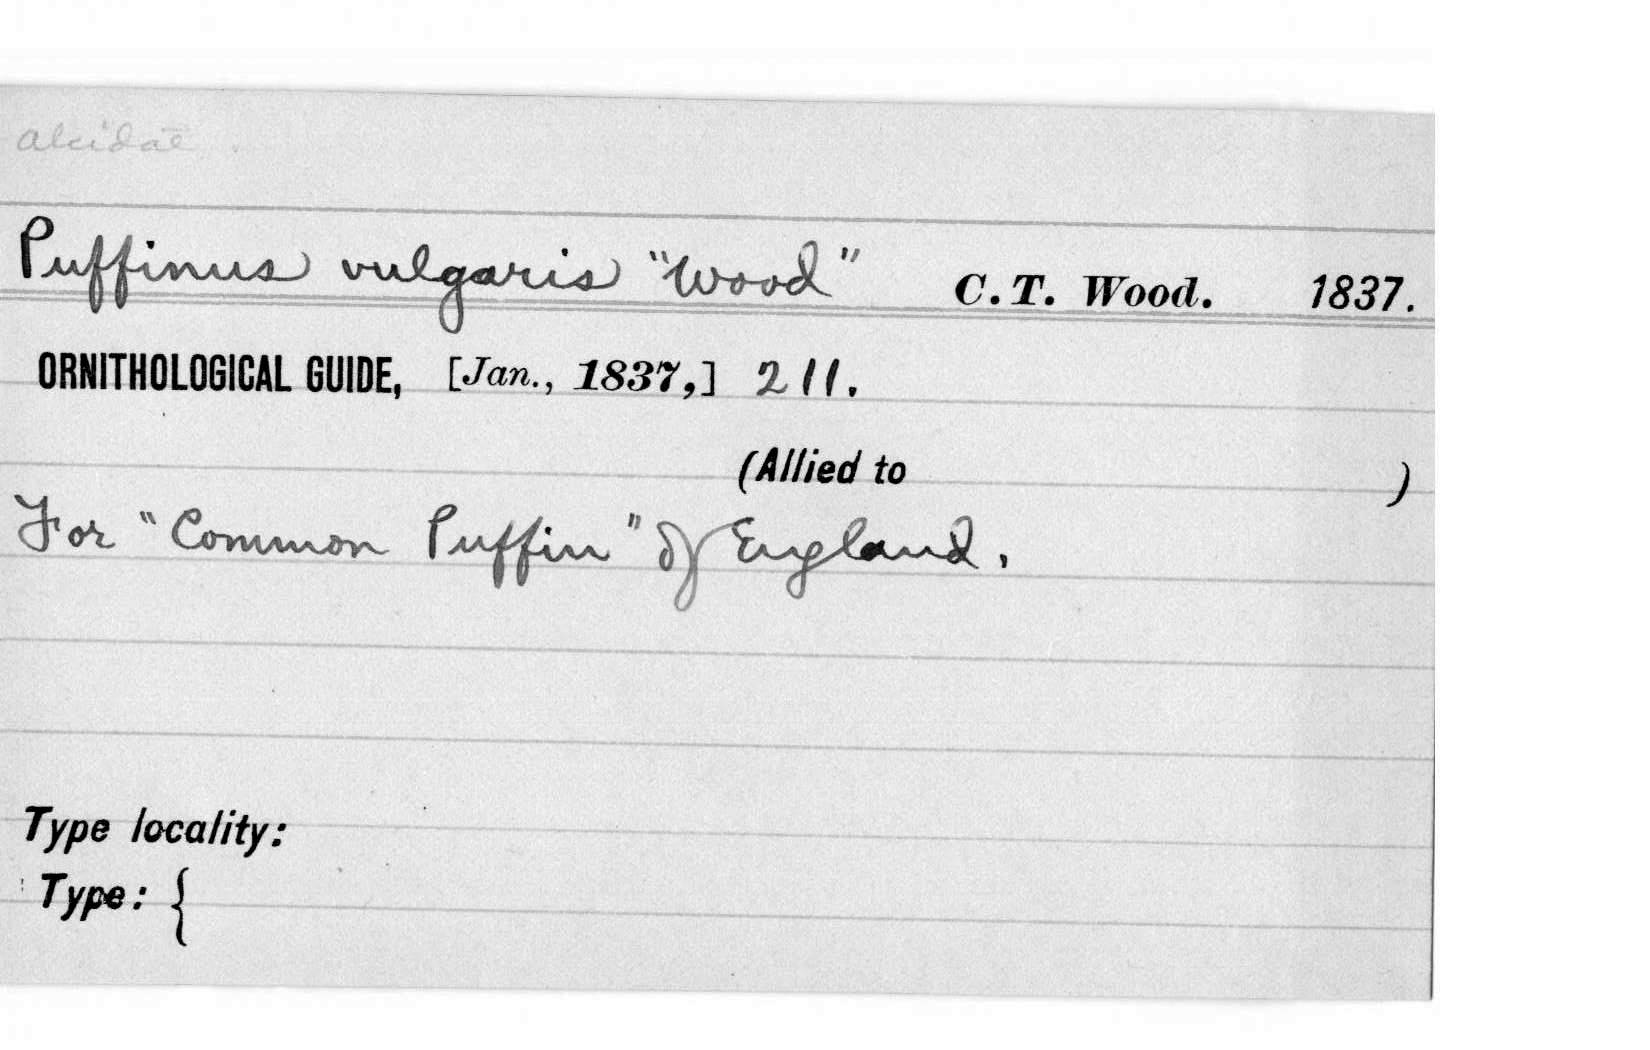 alcidae.
Puffinus vulgaris "Wood" C. T. Wood. 1837.
ORNITHOLOGICAL GUIDE, [Jan., 1837,] 211.
(Allied to )
For "Common Puffin" of England.
Type locality:
Type: {